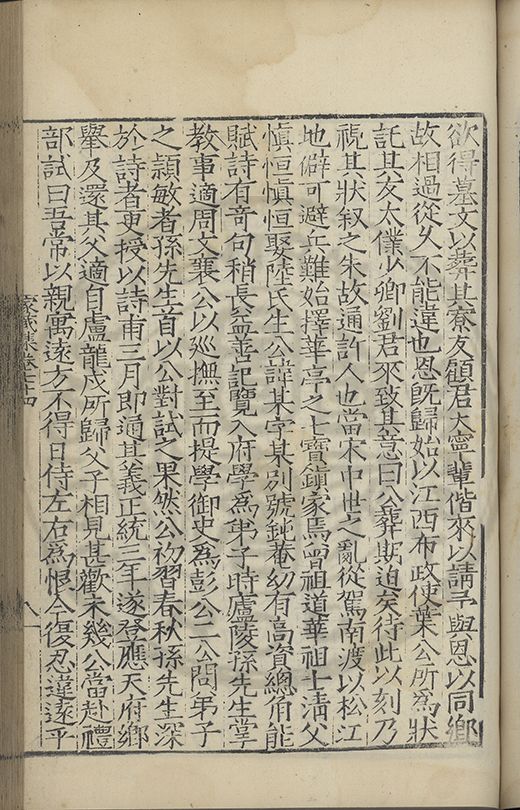 欲得墓文以葬其寮友顧君大寧輩偕來以請予與恩以同鄉
故相過從久不能違也恩旣歸始以江西布政使葉公所爲狀
託其友太僕少卿劉君來致其意曰公葬期迫矣待此以刻乃
視其狀叙之朱故通許人也當宋中世之亂從駕南渡以松江
地僻可避兵難始擇華亭之七寶鎮家焉曾祖道華祖士淸父
愼恒愼恒娶陸氏生公諱某字某别號鈍菴幼有高資總角能
賦詩有竒句稍長益善記覽入府學爲弟子時廬陵孫先生掌
教事適周文襄公以廵撫至而提學御史爲彭公二公問弟子
之頴敏者孫先生首以公對試之果然公初習春秋孫先生深
於詩者更授以詩甫三月即通其義正統三年遂登應天府鄉
舉及還其父適自盧龍戍所歸父子相見甚歡未幾公當赴禮
部試曰吾常以親寓遠方不得日侍左右爲恨今復忍違遠乎
家藏集卷七十四
八